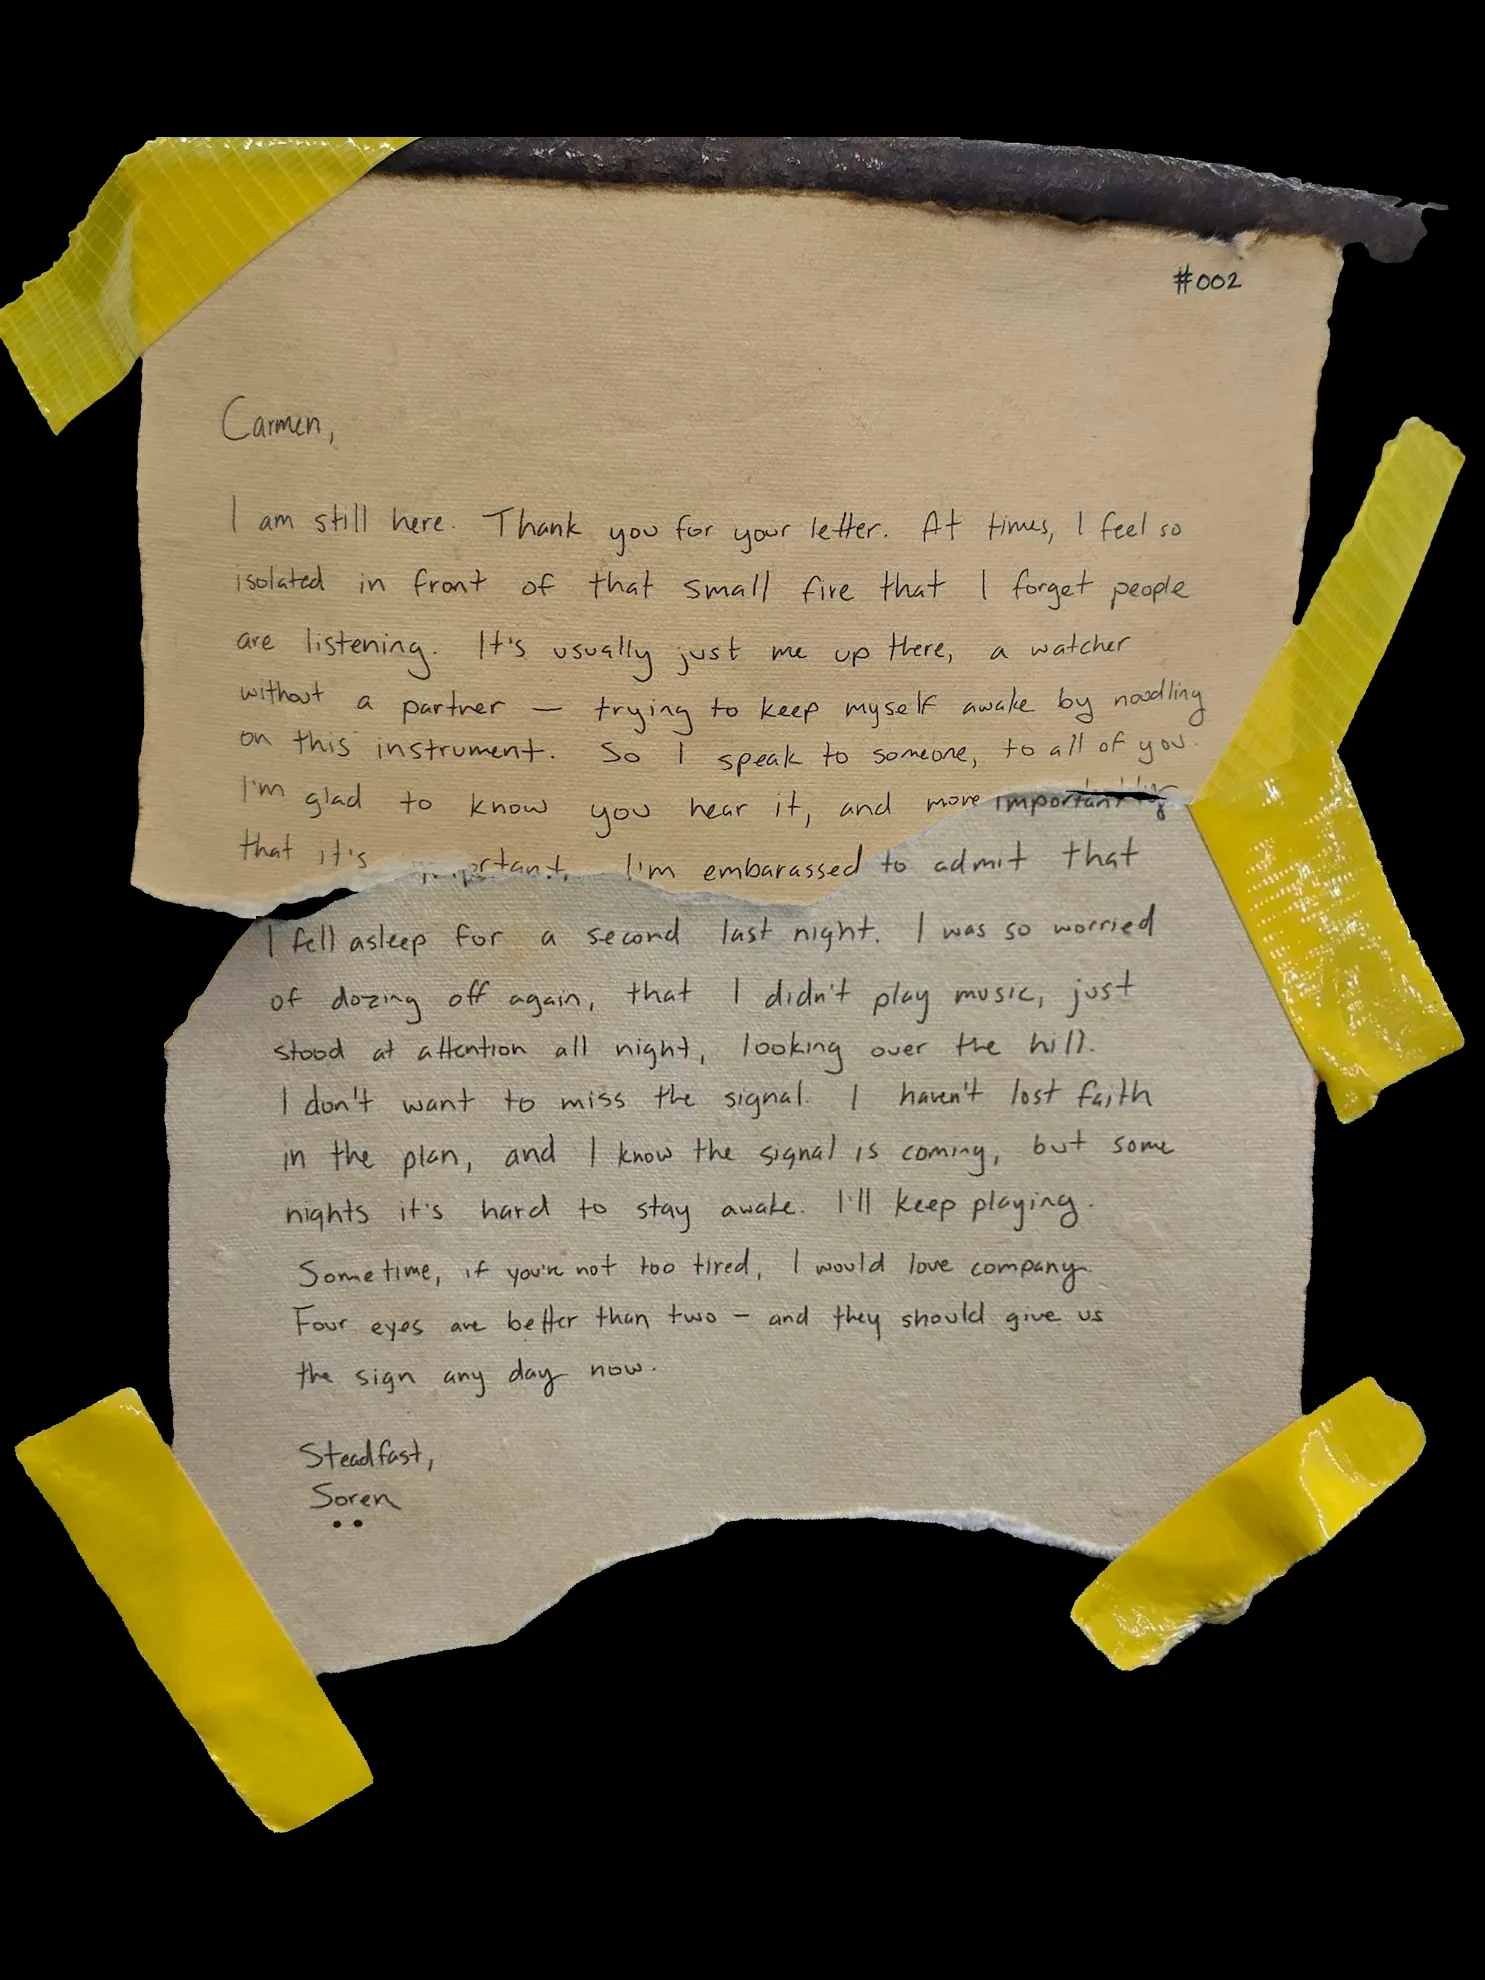 #002
Carmen,
I am still here. Thank you for your letter. At times, I feel so
isolated in front of that small fire that I forget people
are listening. It's usually just me up there, a watcher
without a partner — trying to keep myself awake by noodling
on this instrument. So I speak to someone, to all of you.
I'm glad to know you hear it, and more importantly
that it's important. I'm embarassed to admit that
I fell asleep for a second last night. I was so worried
of dozing off again, that I didn't play music, just
stood at attention all night, looking over the hill.
I don't want to miss the signal. I haven't lost faith
in the plan, and I know the signal is coming, but some
nights it's hard to stay awake. I'll keep playing.
Sometime, if you're not too tired, I would love company.
Four eyes are better than two – and they should give us
the sign any day now.
Steadfast,
Soren